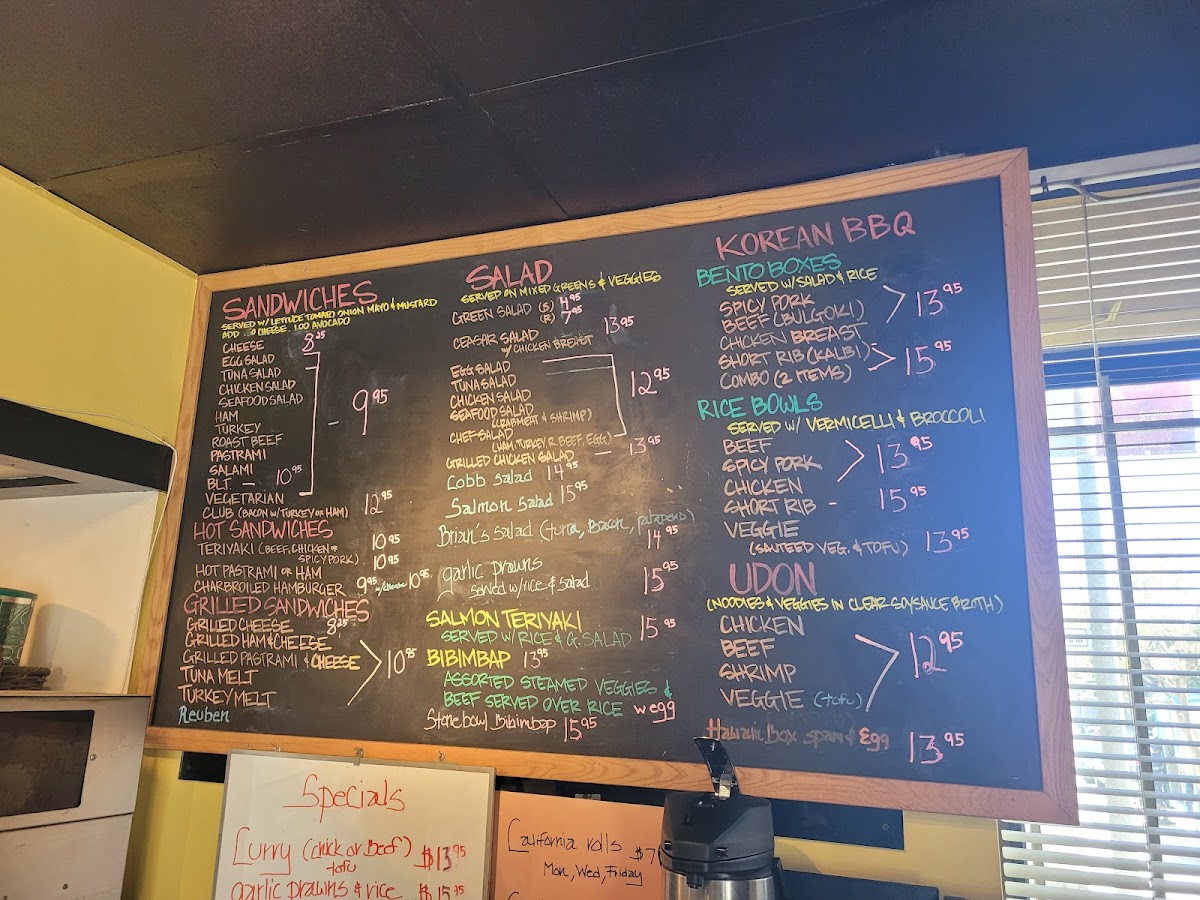 SANDWICHES
SERVED W/ LETTUCE TOMATO ONION MAYO & MUSTARD
ADD CHEESE . 1.00 AVOCADO
CHEESE 8.25
EGG SALAD
TUNA SALAD
CHICKEN SALAD
SEAFOOD SALAD
HAM
TURKEY
ROAST BEEF
PASTRAMI
SALAMI
9.95
BLT — 10.95
VEGETARIAN
CLUB (BACON W/ TURKEY OR HAM) 12.95
HOT SANDWICHES
TERIYAKI (BEEF, CHICKEN & 10.95
SPICY PORK) 10.95
HOT PASTRAMI OR HAM
CHARBROILED HAMBURGER 9.95 w/cheese 10.95
GRILLED SANDWICHES
GRILLED CHEESE 8.25
GRILLED HAM & CHEESE
GRILLED PASTRAMI & CHEESE 10.95
TUNA MELT
TURKEY MELT
Reuben
SALAD
SERVED ON MIXED GREENS & VEGGIES
GREEN SALAD (S) 4.95
(R) 7.95
CEASAR SALAD 13.95
W/ CHICKEN BREAST
EGG SALAD
TUNA SALAD 12.95
CHICKEN SALAD
SEAFOOD SALAD
(CRABMEAT & SHRIMP)
CHEF SALAD
(HAM, TURKEY, R. BEEF, EGG)
GRILLED CHICKEN SALAD — 13.95
Cobb salad 14.95
Salmon salad 15.95
Brian's Salad (tuna, Bacon, jalapeno)
14.95
garlic prawns
served w/rice & salad 15.95
SALMON TERIYAKI 15.95
SERVED W/ RICE & G. SALAD
BIBIMBAP 13.95
ASSORTED STEAMED VEGGIES &
BEEF SERVED OVER RICE w egg
Stone bowl Bibimbap 15.95
KOREAN BBQ
BENTO BOXES
SERVED W/ SALAD & RICE
SPICY PORK
BEEF (BULGOKI) 13.95
CHICKEN BREAST
SHORT RIB (KALBI) 15.95
COMBO (2 ITEMS)
RICE BOWLS
SERVED W/ VERMICELLI & BROCCOLI
BEEF
SPICY PORK 13.95
CHICKEN
SHORT RIB - 15.95
VEGGIE
(SAUTEED VEG. & TOFU) 13.95
UDON
(NOODLES & VEGGIES IN CLEAR SOYSAUCE BROTH)
CHICKEN
BEEF 12.95
SHRIMP
VEGGIE (tofu)
Hawaiin Box spam & Egg 13.95
Specials
Curry (chick or Beef) $13.95
tofu
garlic prawns & rice $15.95
California rolls $7
Mon, Wed, Friday